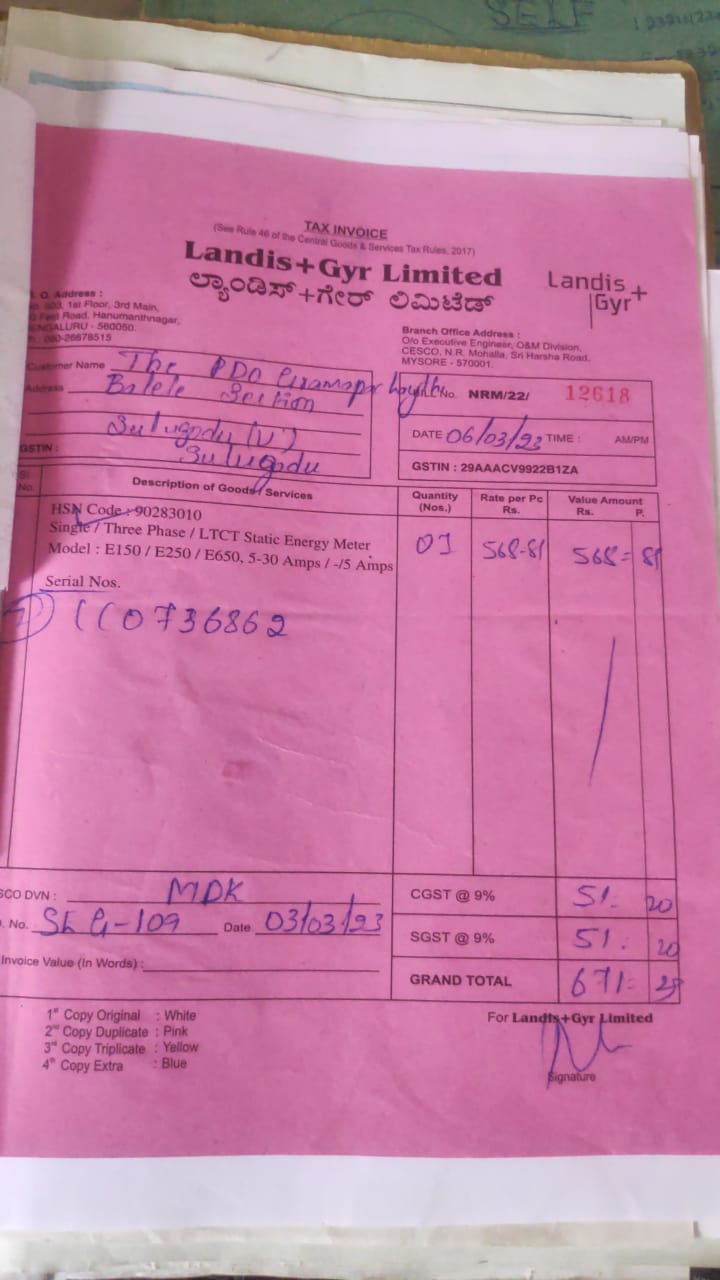 SELF
TAX INVOICE
(See Rule 46 of the Central Goods & Services Tax Rules, 2017)
Landis+Gyr Limited
ಲ್ಯಾಂಡಿಸ್+ಗೇರ್ ಲಿಮಿಟೆಡ್
Landis+
Gyr
O. Address :
1st Floor, 3rd Main,
Feet Road, Hanumanthnagar,
BENGALURU - 560050.
080-26678515
Branch Office Address :
O/o Executive Engineer, O&M Division,
CESCO, N.R. Mohalla, Sri Harsha Road,
MYSORE - 570001.
Customer Name The PDO
Address Balele Section
Sulugodu (V)
Sulugodu
GSTIN :
No. NRM/22/ 12618
DATE 06/03/23 TIME : AM/PM
GSTIN : 29AAACV9922B1ZA
Sl. No. Description of Goods / Services Quantity (Nos.) Rate per Pc Rs. Value Amount Rs. P.
HSN Code : 90283010
Single / Three Phase / LTCT Static Energy Meter
Model : E150 / E250 / E650, 5-30 Amps / -/5 Amps
01 568-81 568= 81
Serial Nos.
0736862
SCO DVN : MDK
CGST @ 9% 51. 20
No. SEG-109 Date 03/03/23
SGST @ 9% 51. 20
Invoice Value (In Words) :
GRAND TOTAL 671=
1st Copy Original : White
2nd Copy Duplicate : Pink
3rd Copy Triplicate : Yellow
4th Copy Extra : Blue
For Landis+Gyr Limited
Signature